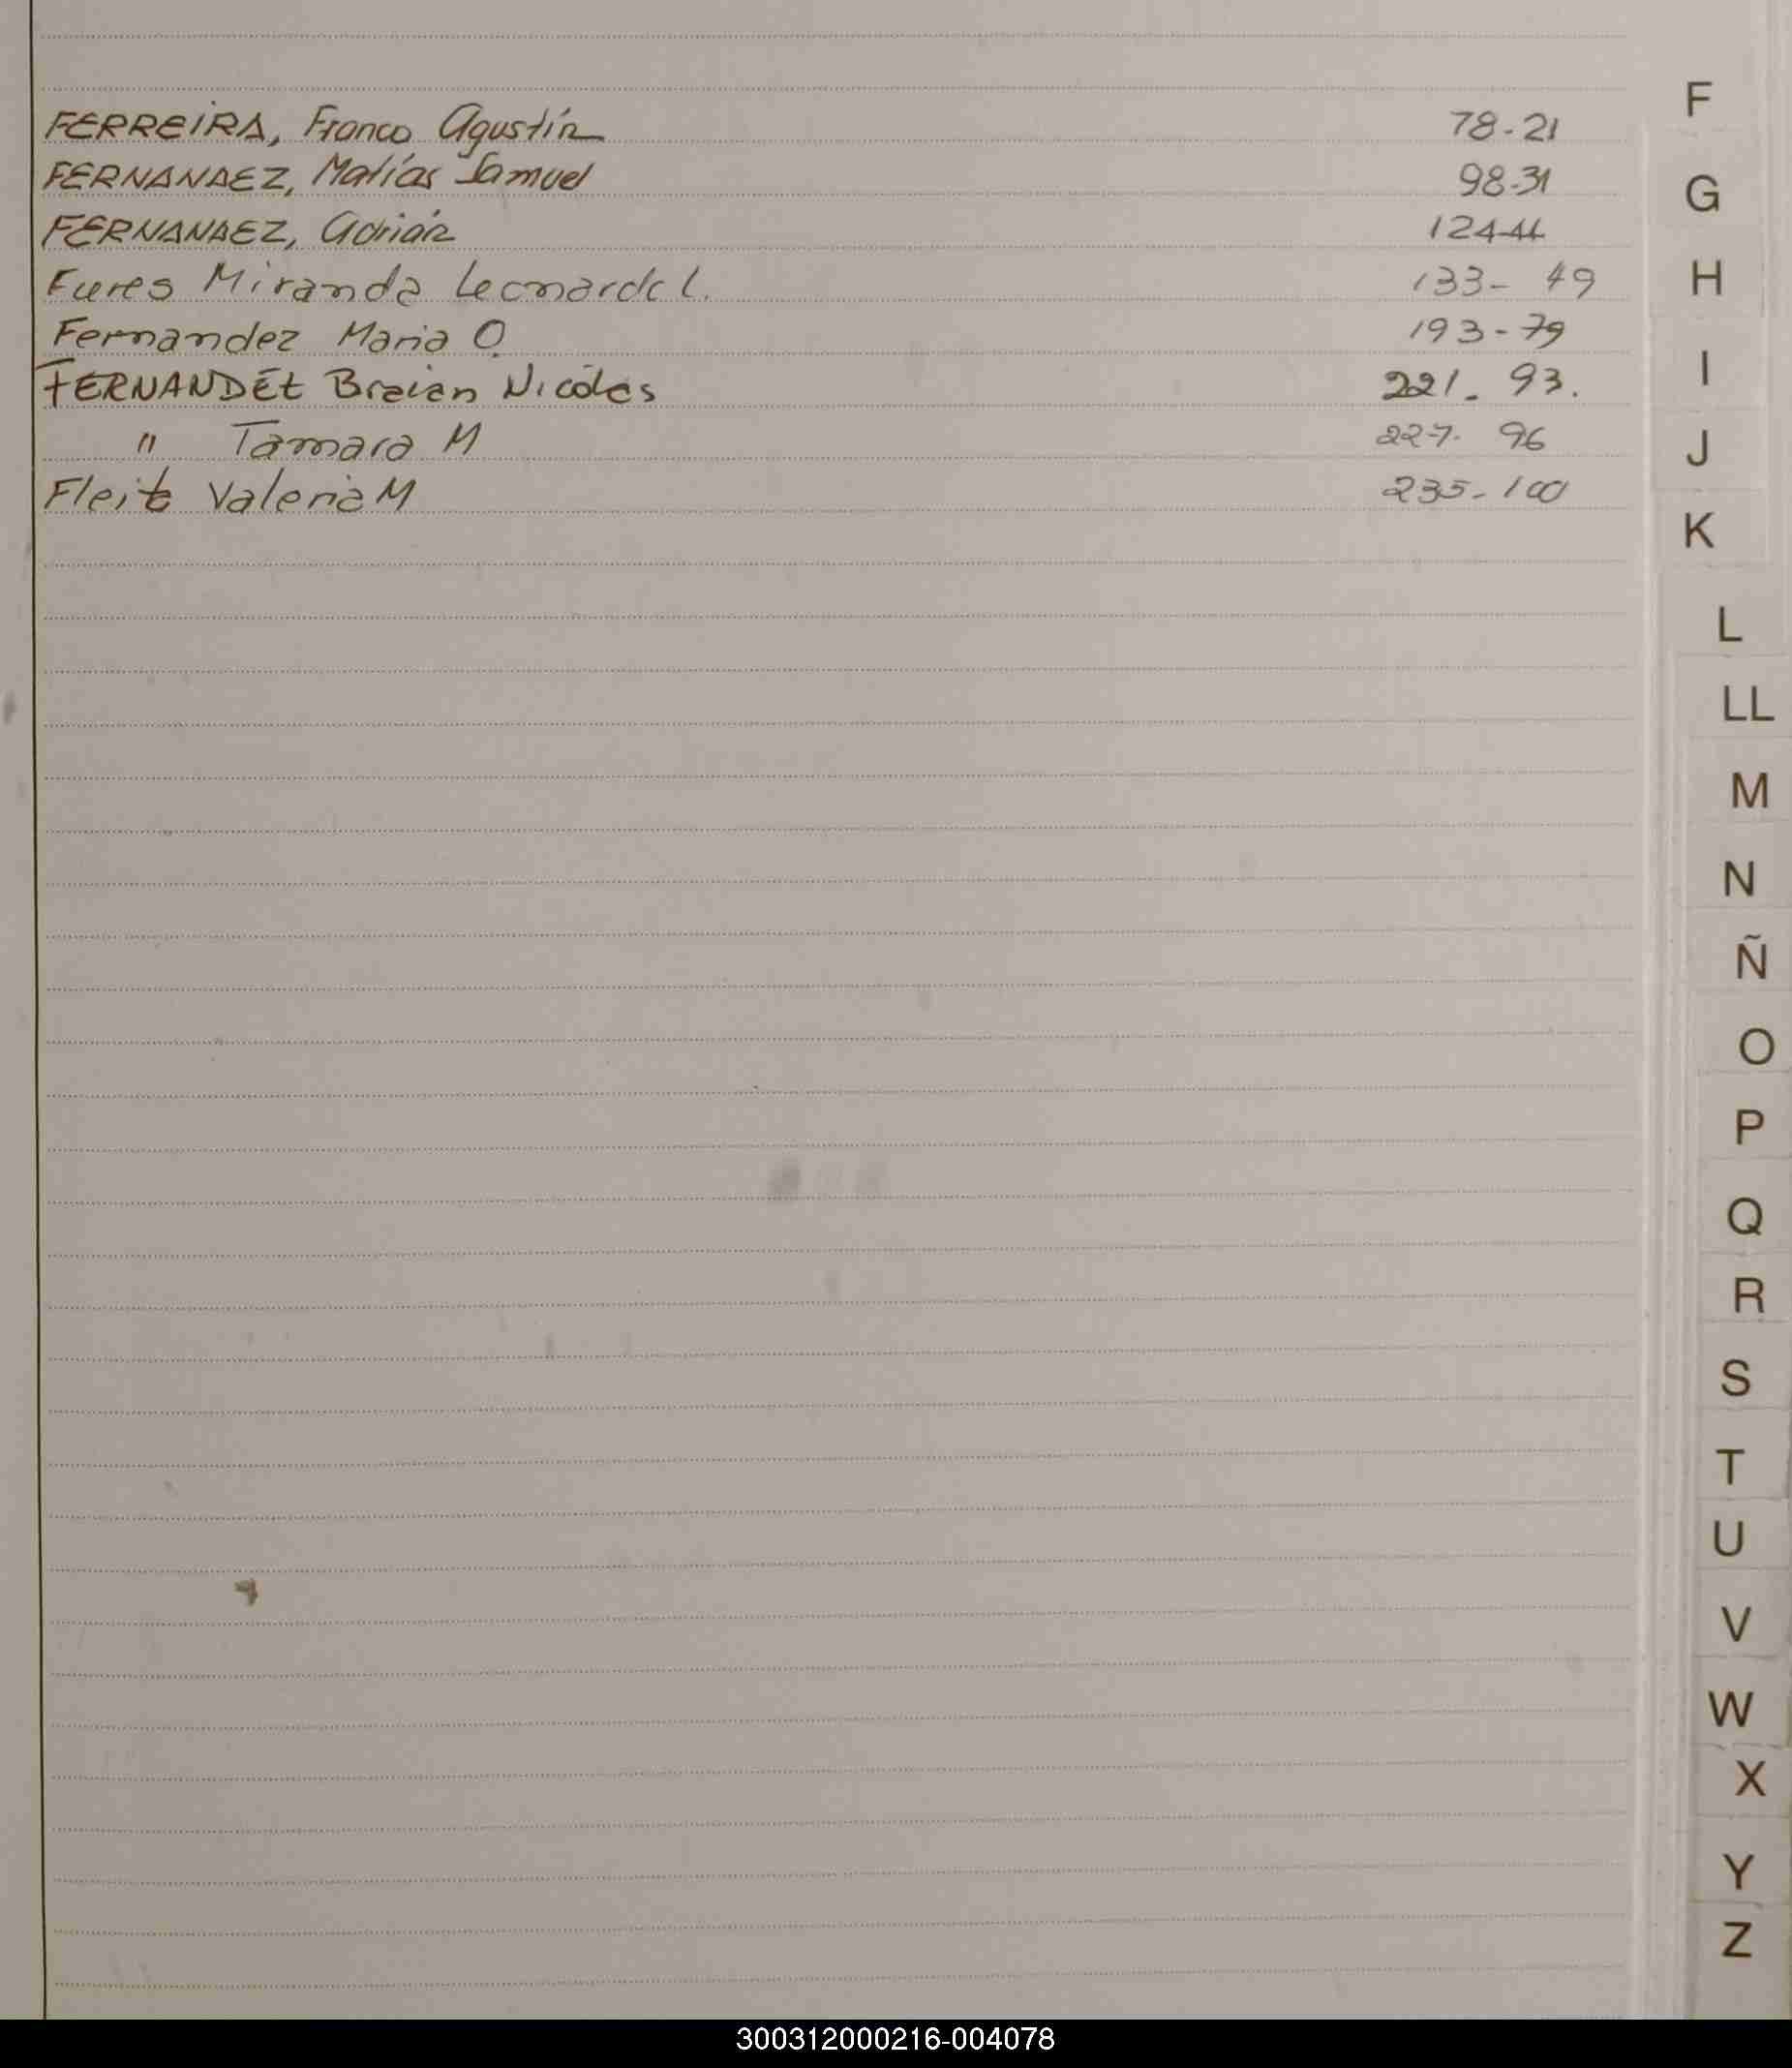 FERREIRA, Franco Agustín 78-21 F
FERNANDEZ, Matías Samuel 98-31 G
FERNANDEZ, Adrián 124-44
Funes Miranda Leonardo l. 133- 49 H
Fernandez Maria O. 193-79
FERNANDEZ Braian Nicolas 221. 93. I
" Tamara M 227. 96 J
Fleitz Valeria M 235-100
K
L
LL
M
N
Ñ
O
P
Q
R
S
T
U
V
W
X
Y
Z
300312000216-004078